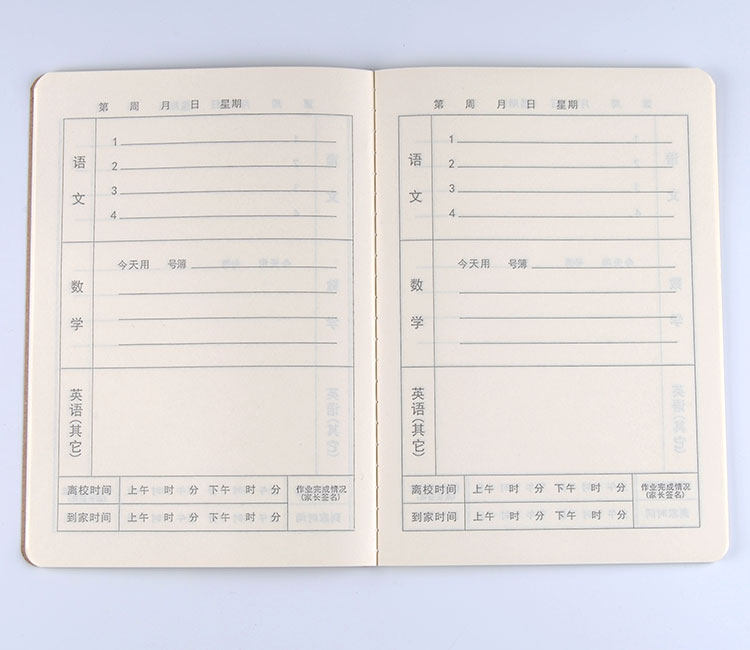 第 周 月 日 星期
语文
1
2
3
4
数学
今天用 号簿
英语(其它)
离校时间 上午 时 分 下午 时 分
到家时间 上午 时 分 下午 时 分
作业完成情况
(家长签名)
第 周 月 日 星期
语文
1
2
3
4
数学
今天用 号簿
英语(其它)
离校时间 上午 时 分 下午 时 分
到家时间 上午 时 分 下午 时 分
作业完成情况
(家长签名)